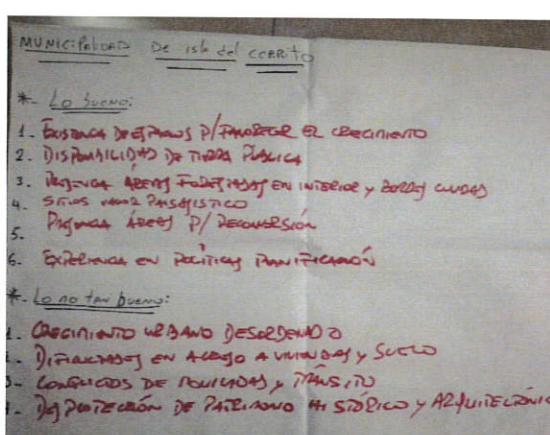 MUNICIPALIDAD De isla del CERRITO
*- Lo bueno:
1- EXISTENCIA DE ESPACIOS P/FAVORECER EL CRECIMIENTO
2. DISPONIBILIDAD DE TIERRA PUBLICA
3. PRESENCIA ÁREAS FORESTADAS EN INTERIOR y BORDES CIUDAD
4. SITIOS VALOR PAISAJISTICO
5. PRESENCIA ÁREAS P/ RECONVERSIÓN
6. EXPERIENCIA EN POLITICAS PLANIFICACIÓN
*- Lo no tan bueno:
1. CRECIMIENTO URBANO DESORDENADO
2. DIFICULTADES EN ACCESO A VIVIENDAS y SUELO
3- CONFLICTOS DE MOVILIDAD y TRÁNSITO
4. DESPROTECCIÓN DE PATRIMONIO HISTÓRICO y ARQUITECTÓNICO